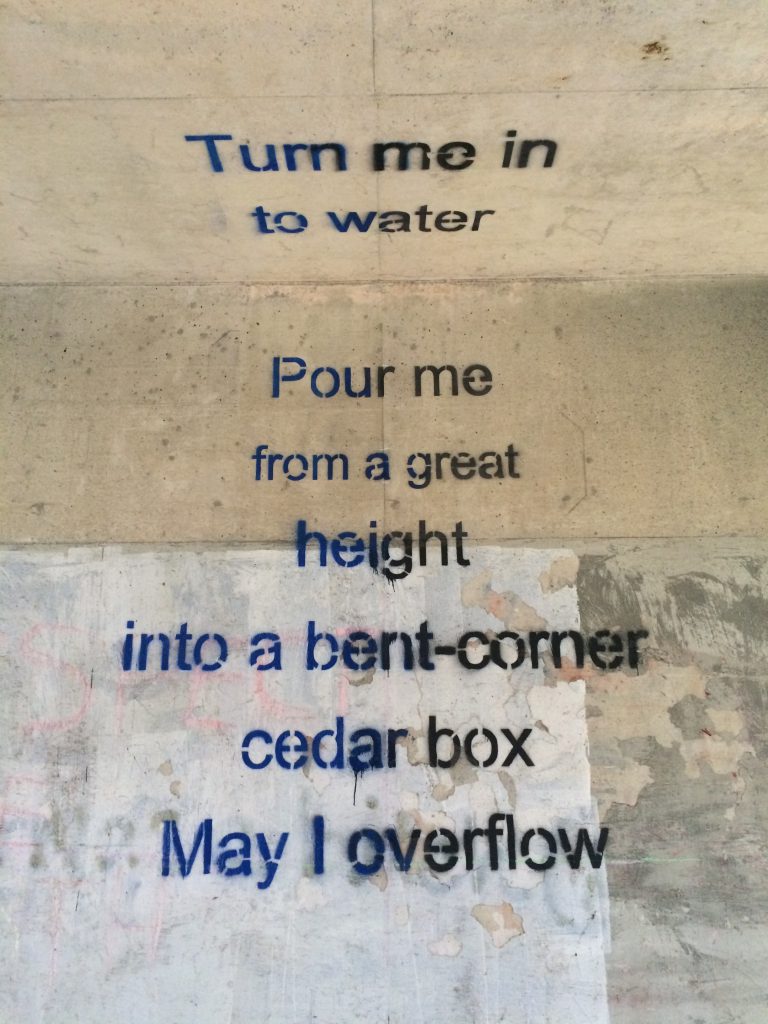 Turn me in
to water
Pour me
from a great
height
into a bent-corner
cedar box
May I overflow